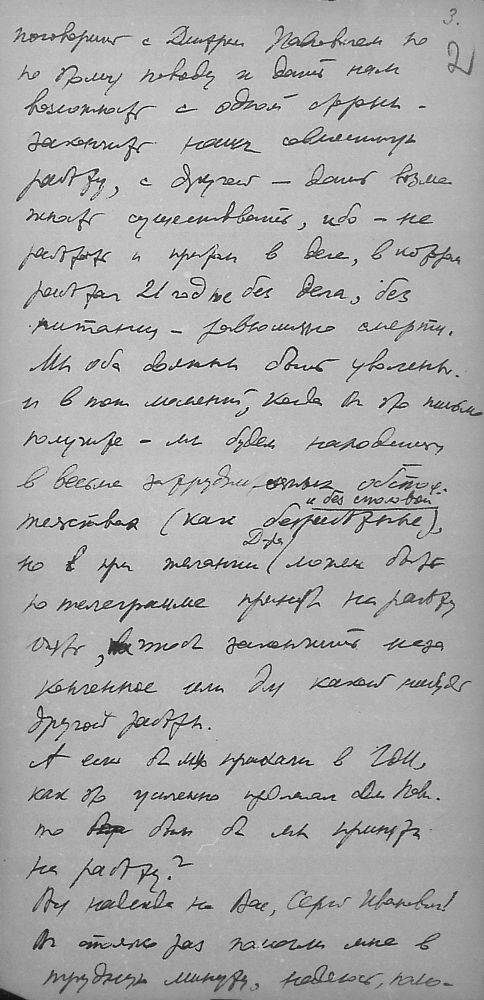 3.
2
поговорить с Дмитрием Павловичем по
по этому поводу и дать нам
возможность с одной стороны -
закончить нашу совместную
работу, с другой — дать возмо
жность существовать, ибо - не
работать и притом в деле, в котором
работал 21 год и без дела, без
питания - равносильно смерти.
Мы оба должны быть уволены.
и в тот момент, когда Вы это письмо
получите - мы будем находиться
в весьма затруднительных обстоя-
тельствах (как безработные),
и без столовой
но при желании Дира может быть
по телеграмме принять на работу
опять, чтоб закончить неза
конченное или для какой нибудь
другой работы.
А если бы мы приехали в ГОИ,
как это усиленно предлагал Дм. Пав.
то были бы мы приняты
на работу?
Вся надежда на Вас, Сергей Иванович!
Вы столько раз помогли мне в
трудную минуту, надеюсь, помо-